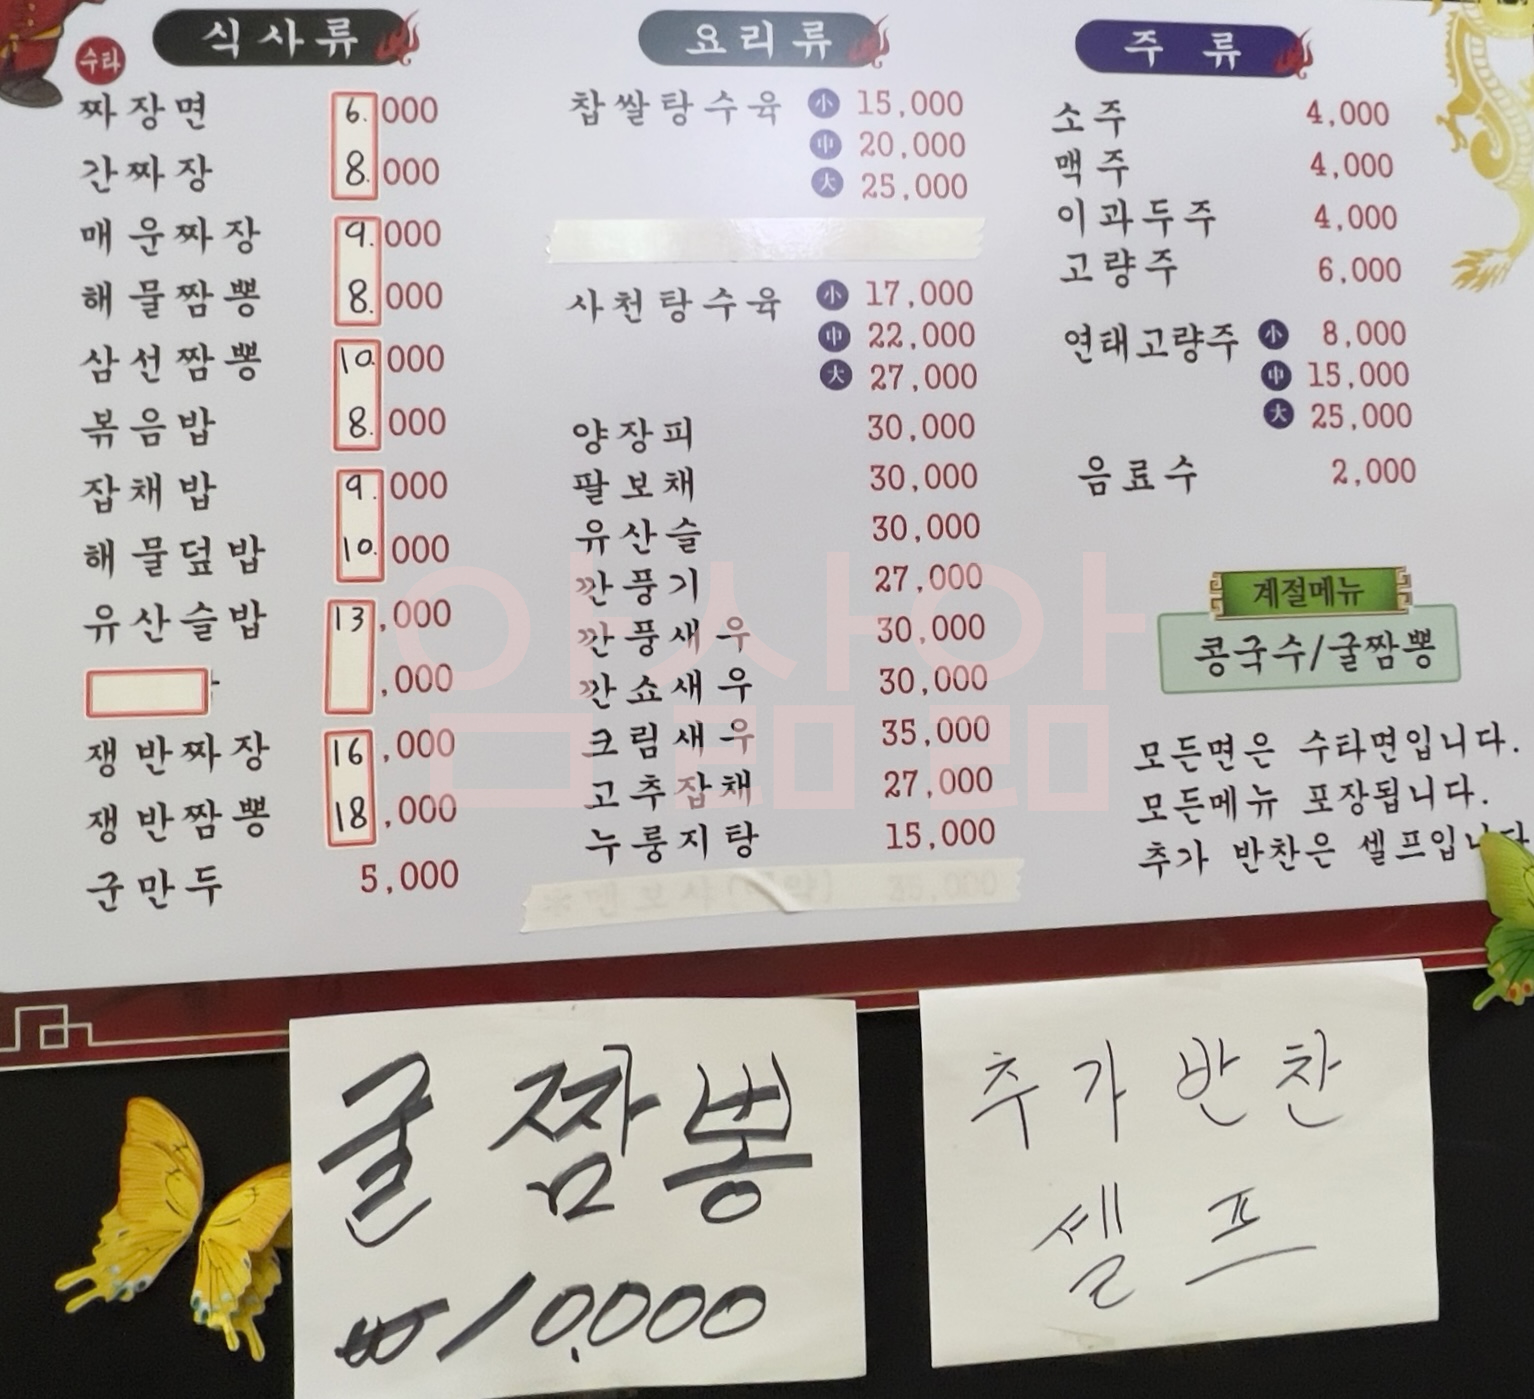 식사류
수타
짜장면 6.000
간짜장 8.000
매운짜장 9.000
해물짬뽕 8.000
삼선짬뽕 10.000
볶음밥 8.000
잡채밥 9.000
해물덮밥 10.000
유산슬밥 13,000
,000
쟁반짜장 16,000
쟁반짬뽕 18,000
군만두 5,000
요리류
찹쌀탕수육 小 15,000
中 20,000
大 25,000
사천탕수육 小 17,000
中 22,000
大 27,000
양장피 30,000
팔보채 30,000
유산슬 30,000
깐풍기 27,000
깐풍새우 30,000
깐쇼새우 30,000
크림새우 35,000
고추잡채 27,000
누룽지탕 15,000
주류
소주 4,000
맥주 4,000
이과두주 4,000
고량주 6,000
연태고량주 小 8,000
中 15,000
大 25,000
음료수 2,000
계절메뉴
콩국수/굴짬뽕
모든면은 수타면입니다.
모든메뉴 포장됩니다.
추가 반찬은 셀프입니다
굴짬뽕
₩10,000
추가반찬
셀프